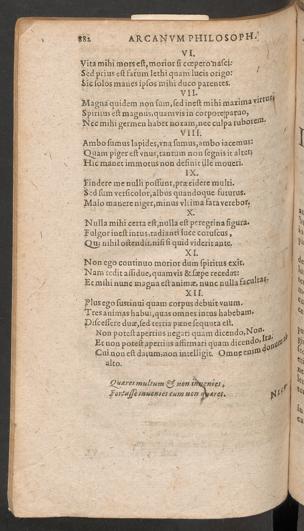 882 ARCANVM PHILOSOPH.
VI.
Vita mihi mors est, morior si cœpero nasci:
Sed prius est fatum lethi quam lucis origo:
Sic solos manes ipsos mihi duco parentes.
VII.
Magna quidem non sum, sed inest mihi maxima virtus,
Spiritus est magnus, quamvis in corpore paruo,
Nec mihi germen habet noxam, nec culpa ruborem.
VIII.
Ambo sumus lapides, vna sumus, ambo iacemus:
Quam piger est vnus, tantum non segnis it alter;
Hic manet immotus non desinit ille moueri.
IX.
Findere me nulli possunt, præcidere multi.
Sed sum versicolor, albus quandoque futurus.
Malo manere niger, minus vltima fata verebor.
X.
Nulla mihi certa est, nulla est peregrina figura.
Fulgor inest intus, radianti luce coruscus,
Qui nihil ostendit, nisi si quid viderit ante.
XI.
Non ego continuo morior dum spiritus exit.
Nam redit assidue, quamvis & sæpe recedat:
Et mihi nunc magna est animæ, nunc nulla facultas.
XII.
Plus ego sustinui quam corpus debuit vnum.
Tres animas habui, quas omnes intus habebam.
Discessere duæ, sed tertia pæne sequuta est.
Non potest apertius negari quam dicendo, Non.
Et non potest apertius affirmari quam dicendo, Ita.
Cui non est datum, non intelligit. Omne enim donum ab
alto.
Quæres multum & non inuenies,
Fortasse inuenies cum non quæres.